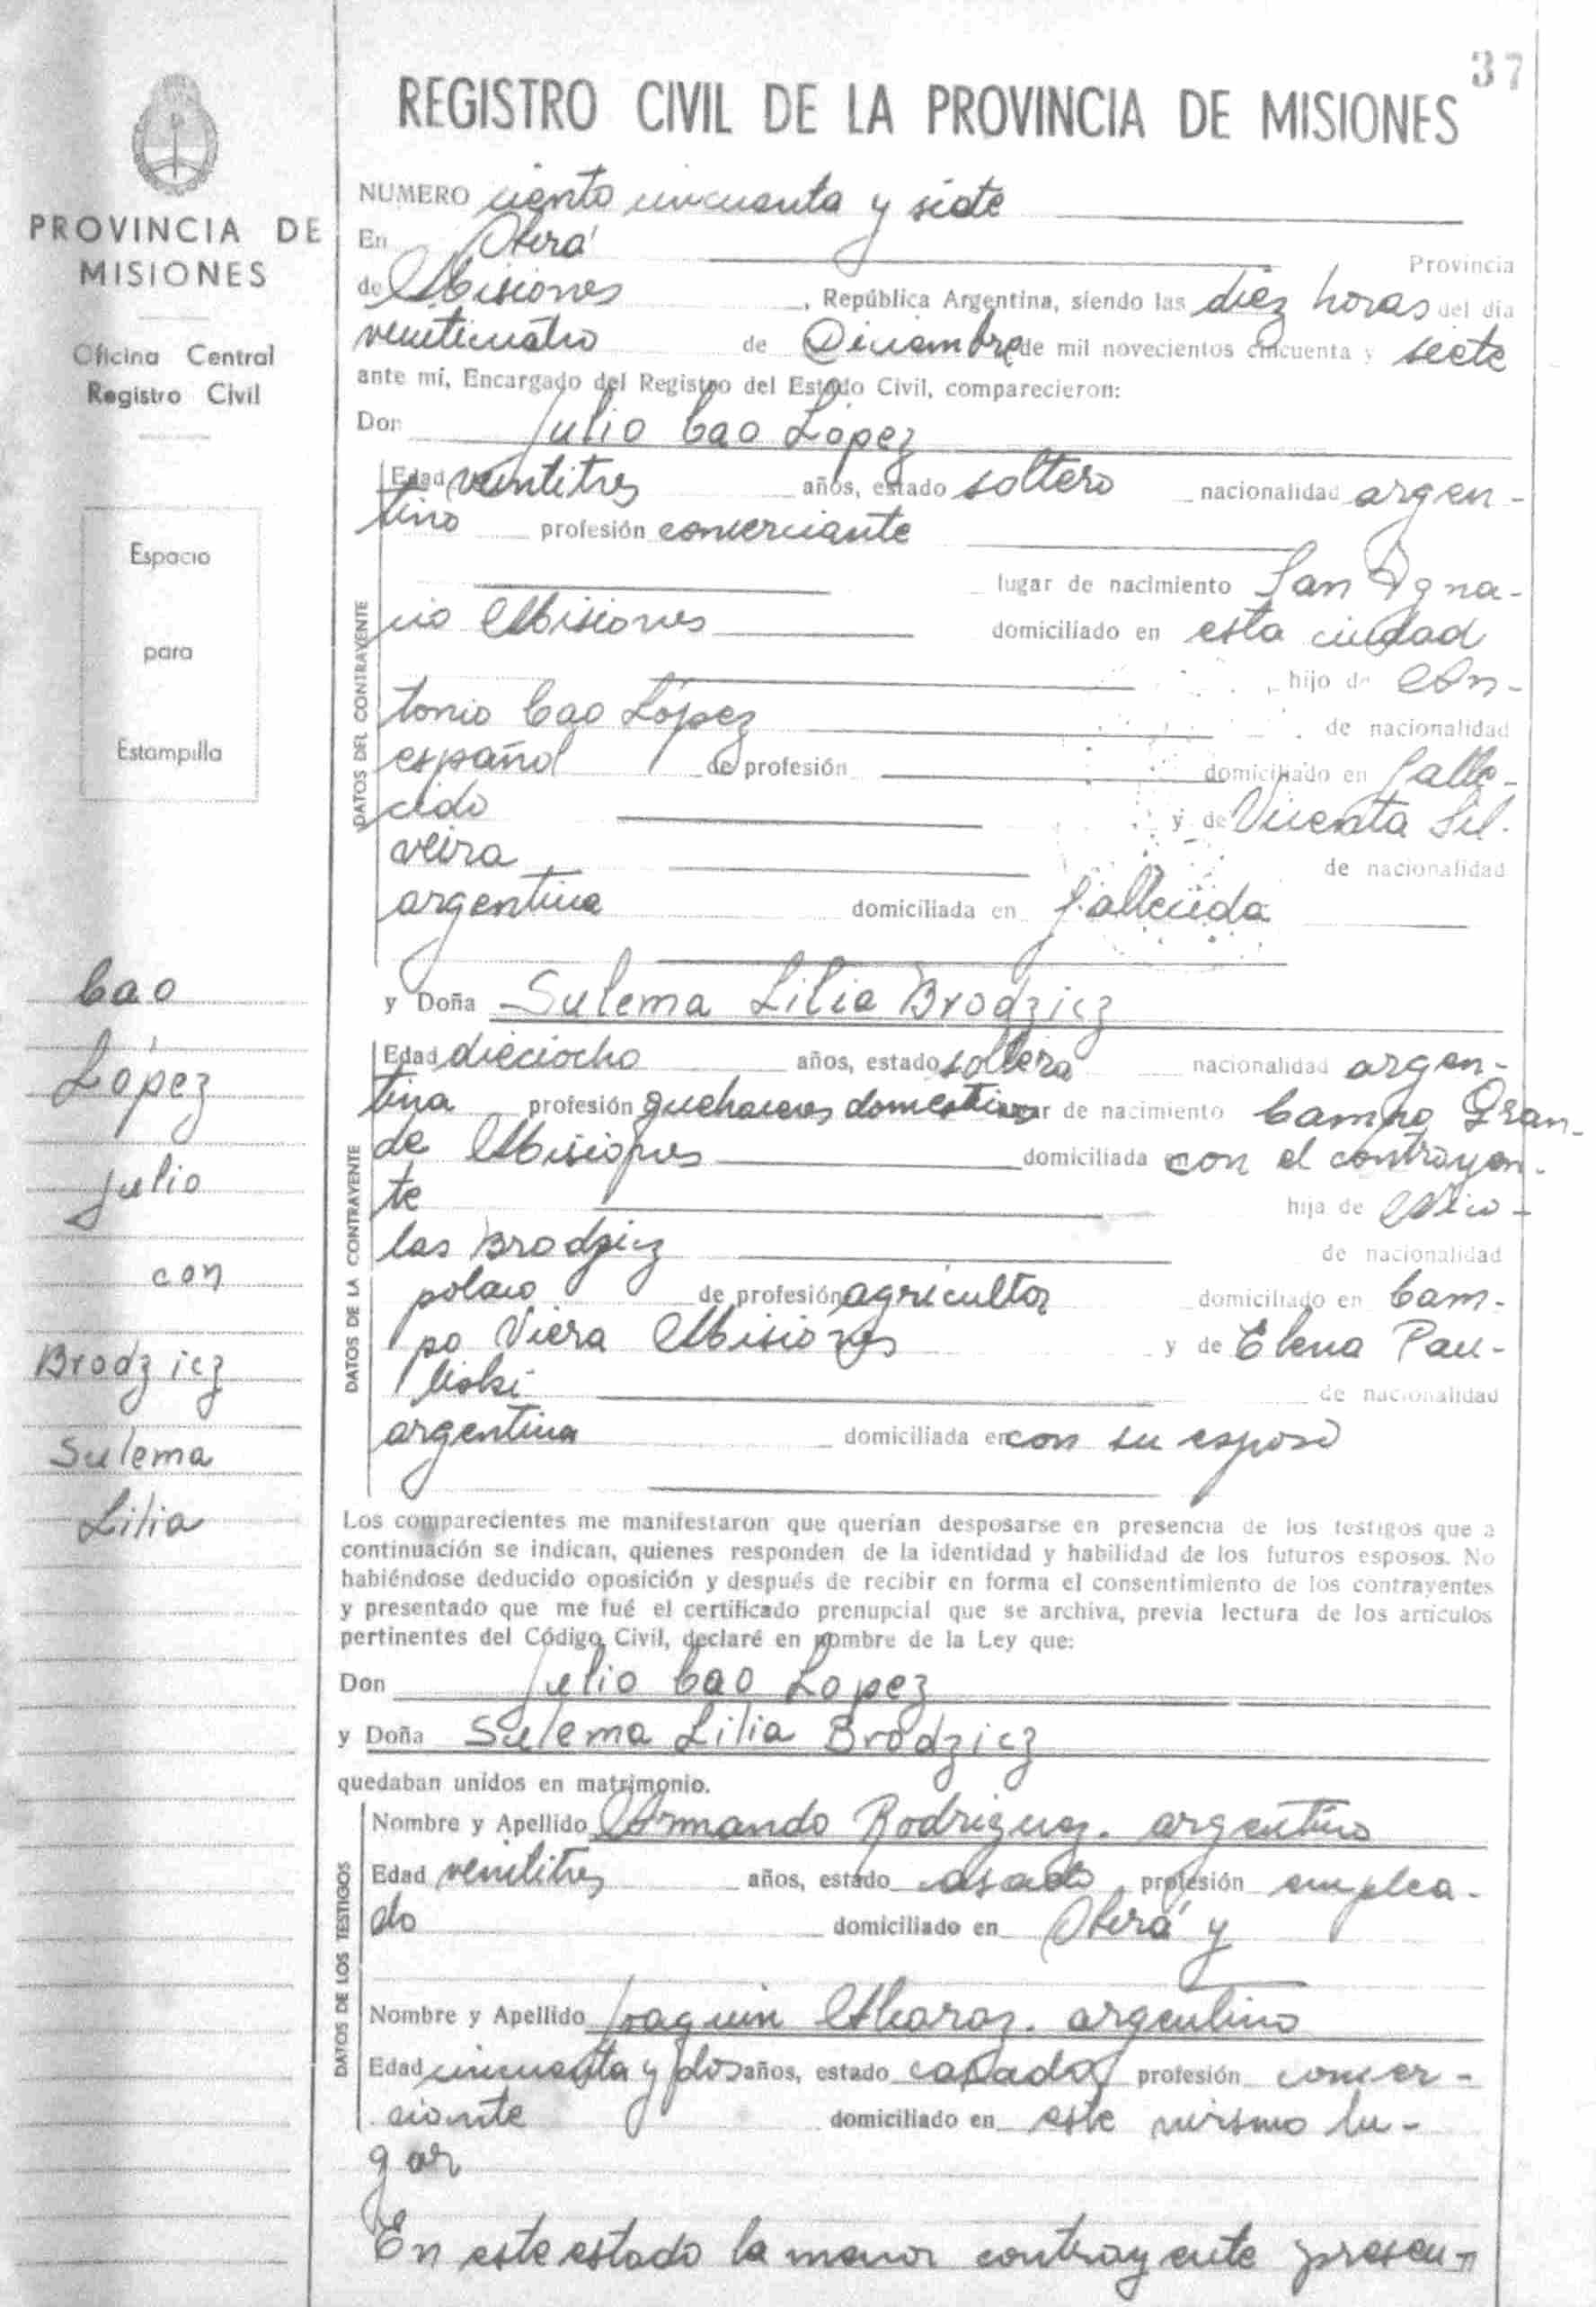 37
REGISTRO CIVIL DE LA PROVINCIA DE MISIONES
PROVINCIA DE
MISIONES
Oficina Central
Registro Civil
Espacio
para
Estampilla
Cao
López
Julio
con
Brodzicz
Sulema
Lilia
NUMERO ciento cincuenta y siete
En Oberá Provincia
de Misiones, República Argentina, siendo las diez horas del día
veinticuatro de Diciembre de mil novecientos cincuenta y siete
ante mí, Encargado del Registro del Estado Civil, comparecieron:
Don Julio Cao López
DATOS DEL CONTRAYENTE
Edad veintitres años, estado soltero nacionalidad argen-
tino profesión comerciante
lugar de nacimiento San Igna-
cio Misiones domiciliado en esta ciudad
hijo de An-
tonio Cao López de nacionalidad
español de profesión domiciliado en falle-
cido y de Vicenta Sil-
veira de nacionalidad
argentina domiciliada en fallecida
y Doña Sulema Lilia Brodzicz
DATOS DE LA CONTRAYENTE
Edad dieciocho años, estado soltera nacionalidad argen-
tina profesión quehaceres domesticos ar de nacimiento Campo Gran-
de Misiones domiciliada con el contrayen-
te hija de Nico-
las Brodzicz de nacionalidad
polaco de profesión agricultor domiciliado en Cam-
po Viera Misiones y de Elena Pau-
liski de nacionalidad
argentina domiciliada en con su esposo
Los comparecientes me manifestaron que querían desposarse en presencia de los testigos que a
continuación se indican, quienes responden de la identidad y habilidad de los futuros esposos. No
habiéndose deducido oposición y después de recibir en forma el consentimiento de los contrayentes
y presentado que me fué el certificado prenupcial que se archiva, previa lectura de los artículos
pertinentes del Código Civil, declaré en nombre de la Ley que:
Don Julio Cao Lopez
y Doña Sulema Lilia Brodzicz
quedaban unidos en matrimonio.
DATOS DE LOS TESTIGOS
Nombre y Apellido Armando Rodriguez. argentino
Edad veintitres años, estado casado, profesión emplea-
do domiciliado en Oberá y
Nombre y Apellido Joaquin Alvarez. argentino
Edad cincuenta y dos años, estado casado profesión comer-
ciante domiciliado en este mismo lu-
gar
En este estado la menor contrayente presen-